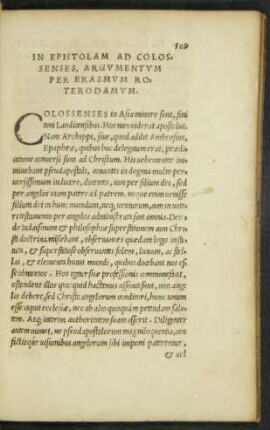 509
IN EPISTOLAM AD COLOS-
SENSES, ARGVMENTVM
PER ERASMVM RO-
TERODAMVM.
COLOSSENSES in Asia minore sunt, fini
timi Laodicensibus. Hos non viderat apostolus.
Nam Archippi, siue, quod addit Ambrosius,
Epaphræ, quibus hoc delegatum erat, prædi-
catione conuersi sunt ad Christum. His vehementer im
minebant pseudapostoli, conantes in dogma multo per
uersissimum inducere, docentes, non per filium dei, sed
per angelos viam patere ad patrem. neque enim venisse
filium dei in hunc mundum, neque venturum, cum in vete
re testamento per angelos administrata sint omnia. Dein
de iudaismum & philosophiæ superstitionem cum Chri
sti doctrina miscebant, obseruantes quædam legis insti
tuta, & superstitiose obseruantes solem, lunam, ac stel-
las, & elementa huius mundi, quibus docebant nos es
se obnoxios. Hos igitur suæ professionis commonefacit,
ostendens illos quicquid hactenus assecuti sunt, non ang
lis debere, sed Christo angelorum conditori, hunc unum
esse caput ecclesiæ, nec ab alio quoquam petendam salu-
tem. Atque interim authoritatem suam asserit. Diligenter
autem monet, ne pseudapostolorum magniloquentia, con
fictisque visionibus angelorum sibi imponi paterentur,
& vel